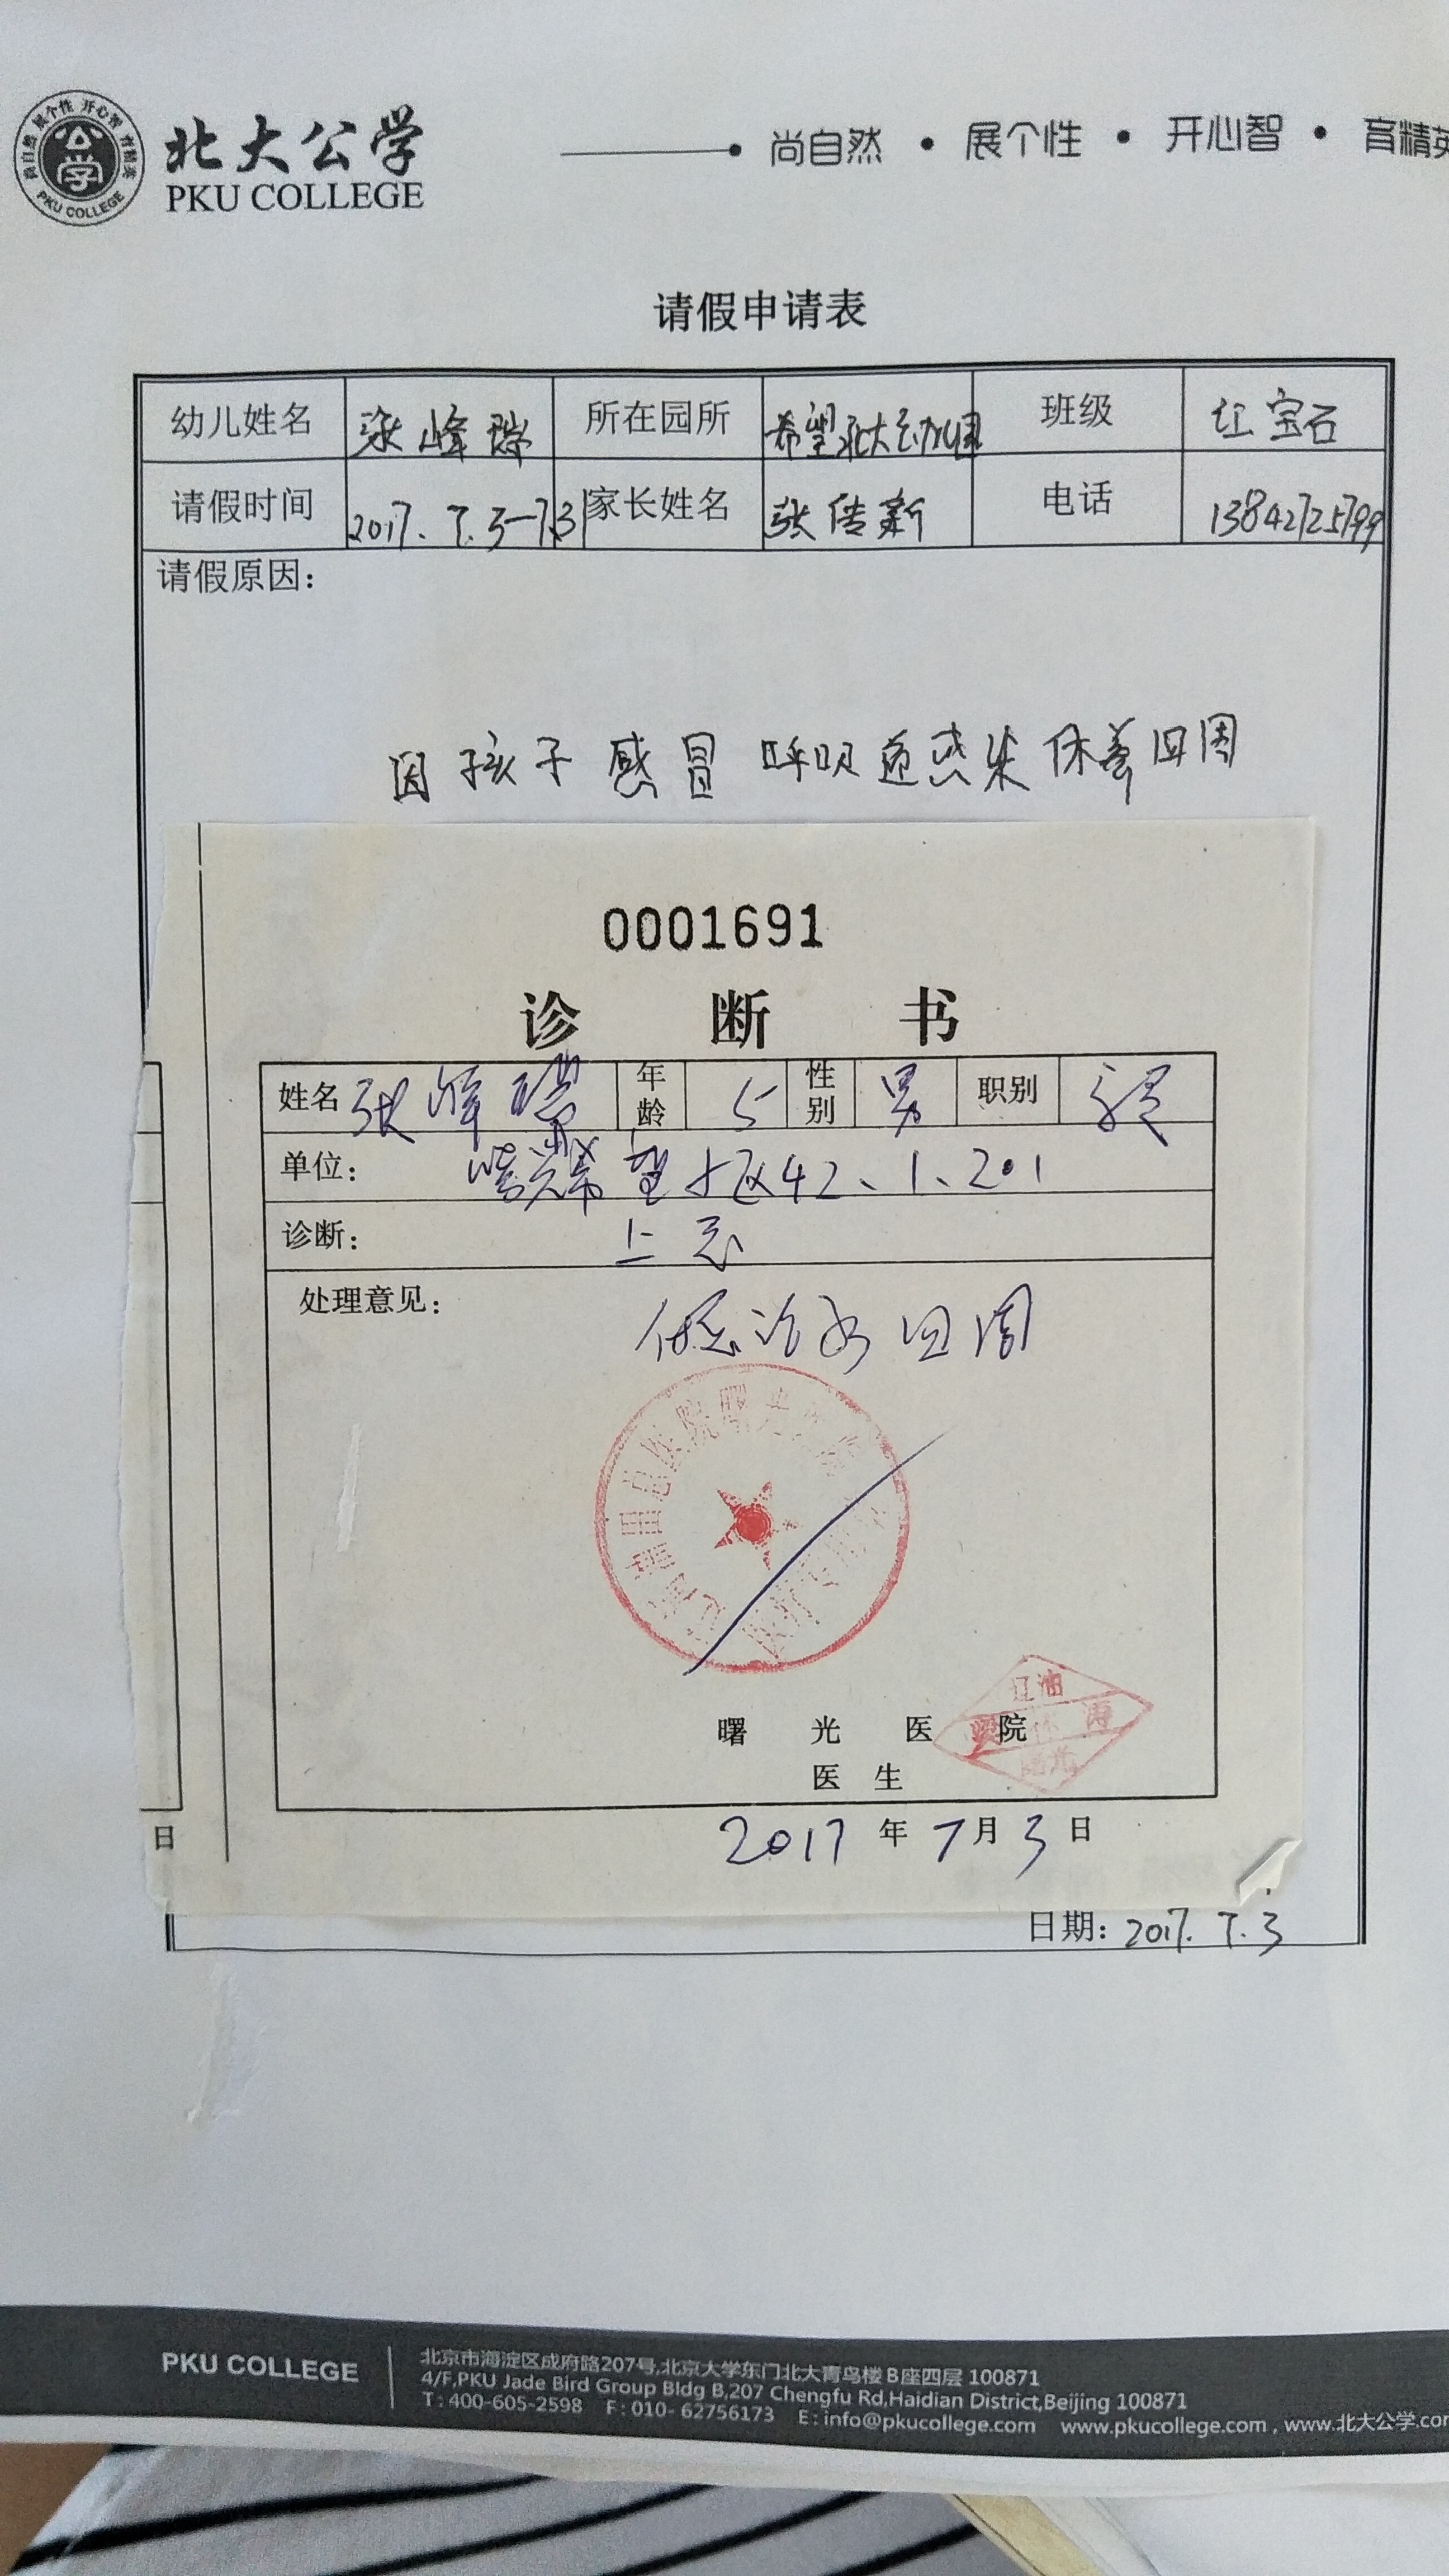 北大公学
PKU COLLEGE
尚自然 · 展个性 · 开心智 · 育精英
请假申请表
幼儿姓名 张峰瑞 所在园所 希望北大 班级 红宝石
请假时间 2017.7.3-7.31 家长姓名 张传新 电话 13842725799
请假原因：
因孩子感冒 呼吸道感染 休养四周
0001691
诊 断 书
姓名 张峰瑞 年龄 5 性别 男 职别
单位： 希望小区42、1、201
诊断： 上感
处理意见：
休息治疗四周
曙 光 医 院
医 生
2017 年 7 月 3 日
日
日期：2017.7.3
PKU COLLEGE
北京市海淀区成府路207号,北京大学东门北大青鸟楼B座四层 100871
4/F,PKU Jade Bird Group Bldg B,207 Chengfu Rd,Haidian District,Beijing 100871
T : 400-605-2598 F : 010- 62756173 E : info@pkucollege.com www.pkucollege.com , www.北大公学.com